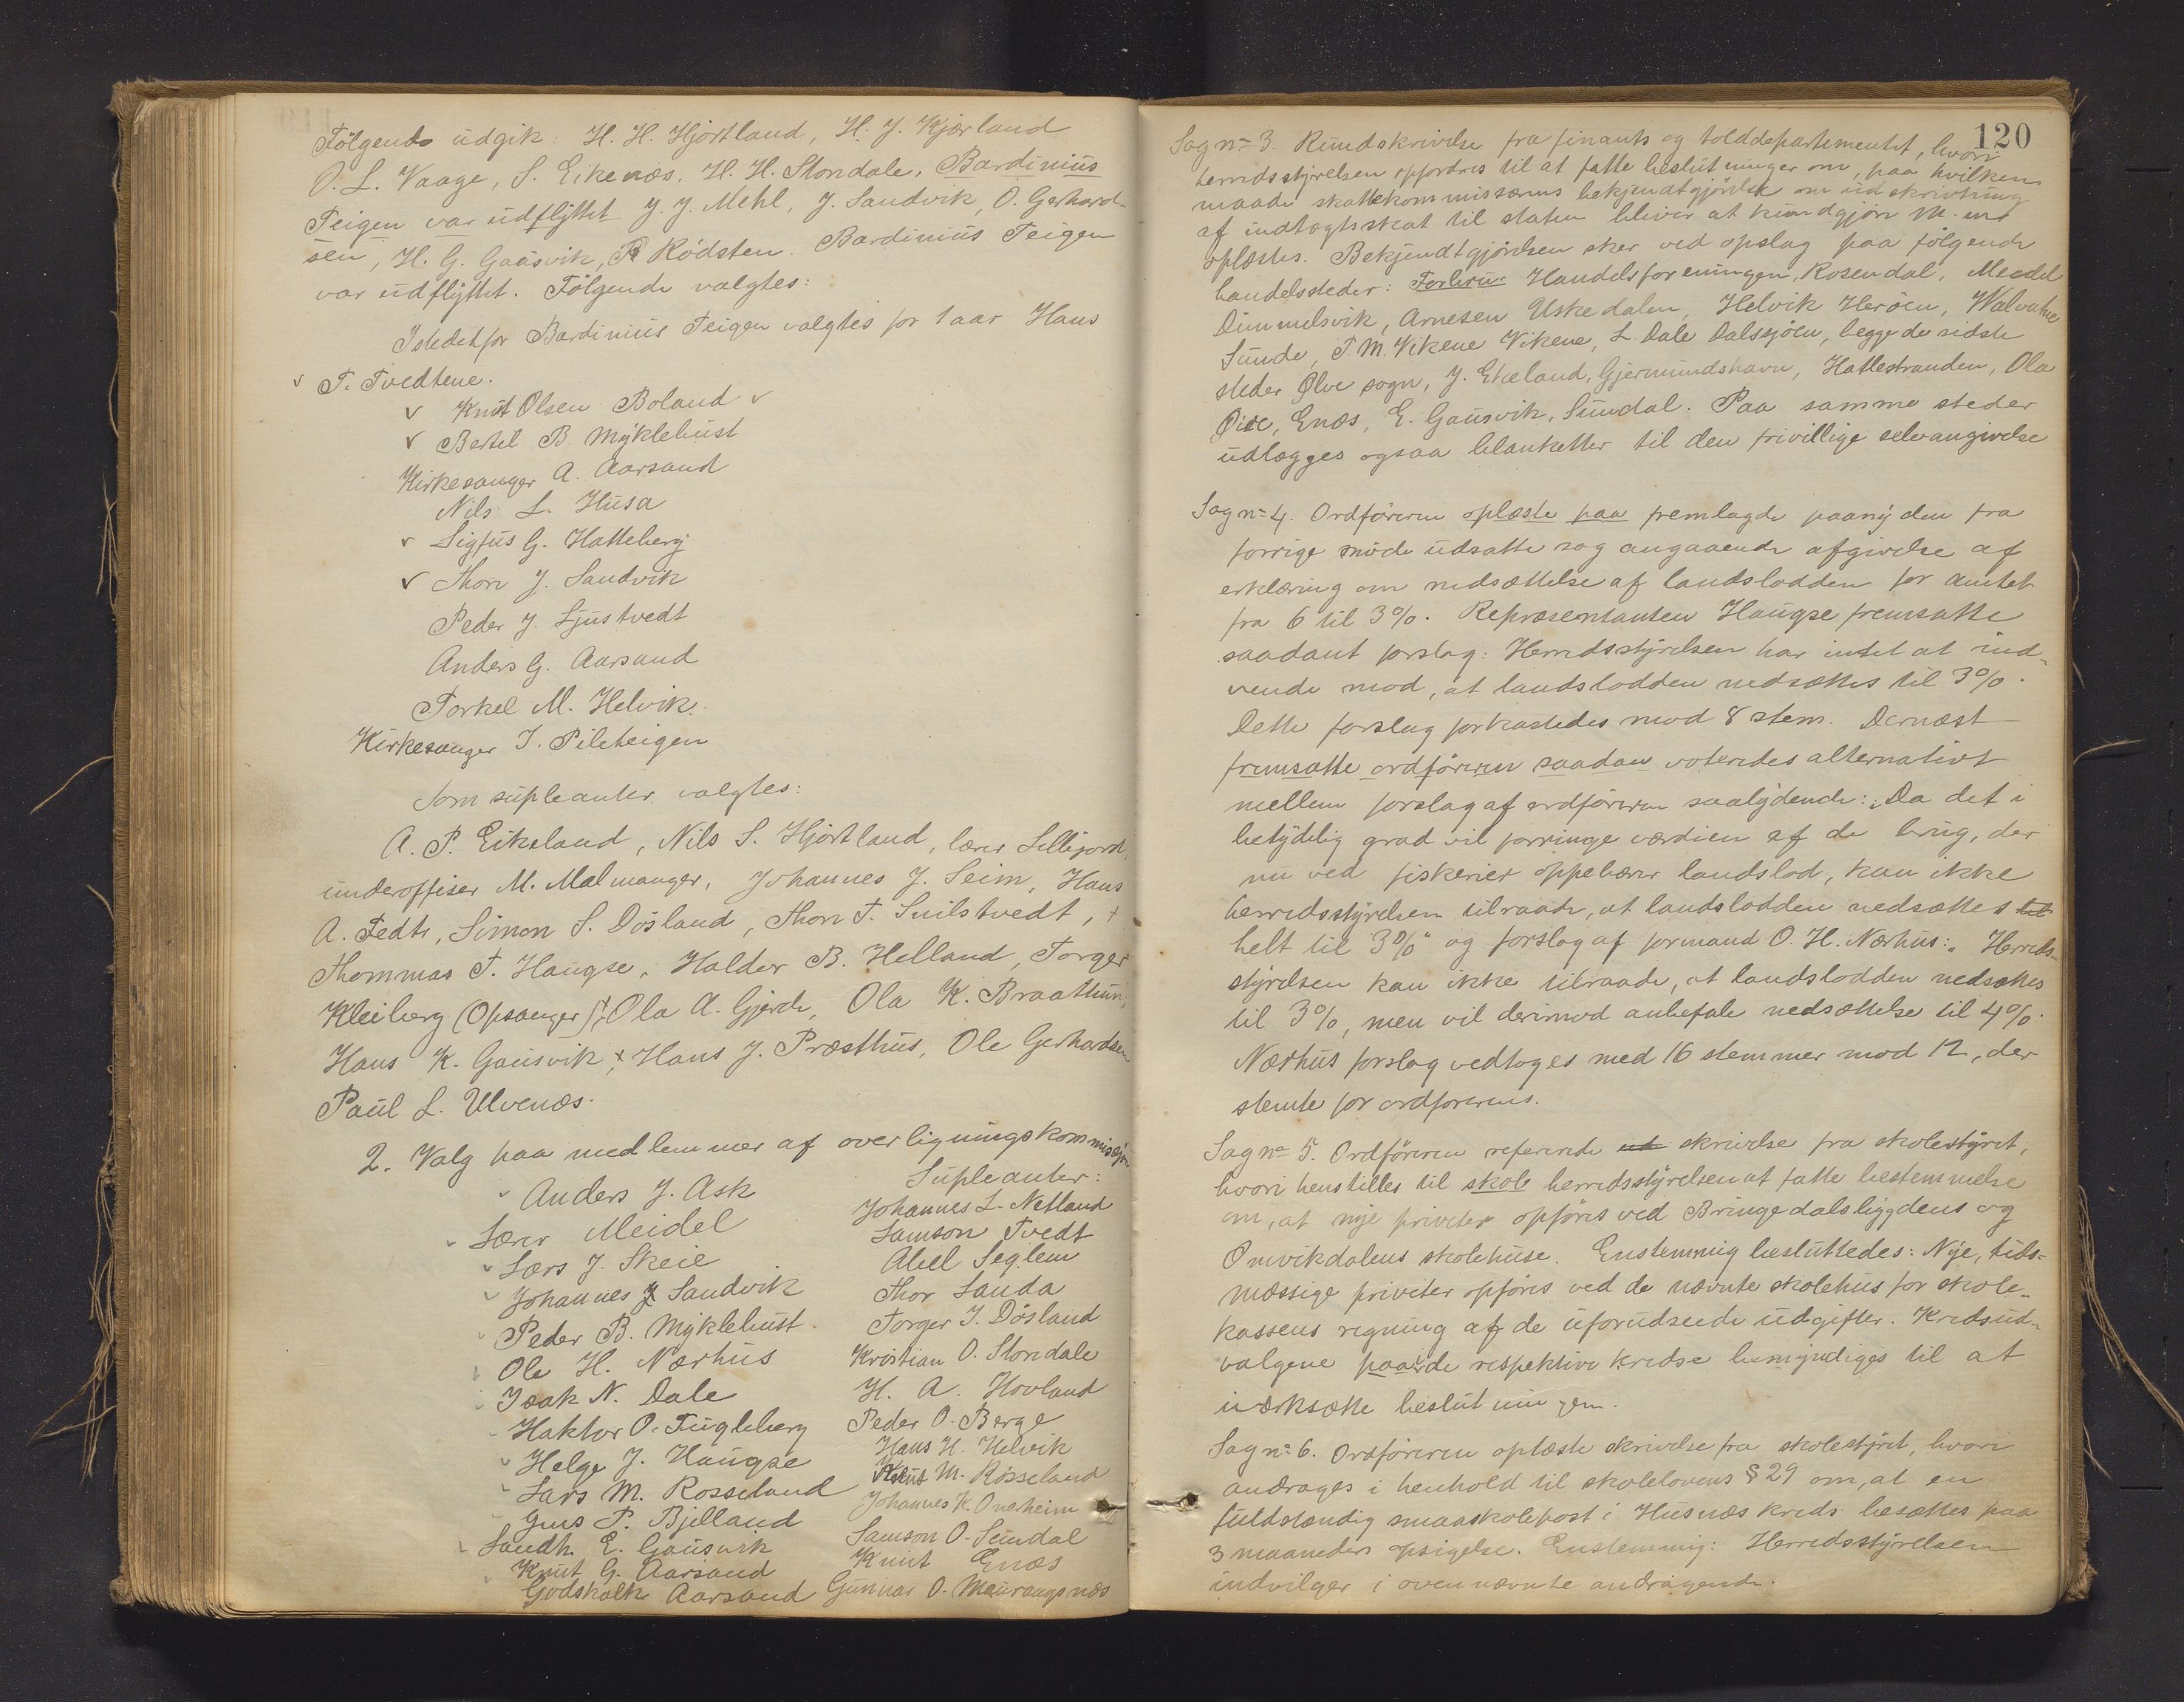 Følgende udgik: H. H. Hjortland, H. J. Kjærland
O. L. Vaage, S. Eikenæs, H. H. Stondale, Bardinius
Teigen var udflyttet J. J. Mehl, J. Sandvik, O. Gerhard-
sen, H. G. Gausvik, R Rødsten. Bardinius Teigen
var udflyttet. Følgende valgtes:
Istedetfor Bardinius Teigen valgtes for 1 aar Hans
T. Tvedtene.
Knut Olsen Boland
Bertil B. Myklebust
Kirkesanger A. Aarsand
Nils L. Husa
Sigfus G. Hatteberg
Thore J. Sandvik
Peder J. Ljustvedt
Anders G. Aarsand
Torkel M. Helvik.
Kirkesanger I. Pileteigen
Som supleanter valgtes:
A. P. Eikeland, Nils S. Hjortland, lærer Lillejord,
underoffiser M. Malmanger, Johannes J. Seim, Hans
A. Fedte, Simon S. Døsland, Thore T. Snilstvedt, +
Thommas T. Haugse, Haldor B. Helland, Torger
Kleiberg (Opsanger), + Ola A. Gjerde, Ola K. Braathun,
Hans K. Gausvik, + Hans J. Præsthus, Ole Gerhardsen
Paul L. Ulvenæs.
2. Valg paa medlemmer af overligningskommissjon
Supleanter:
Anders J. Ask Johannes L. Netland
Lærer Meidel Samson Tvedt
Lars J. Skeie Abel Seglem
Johannes J Sandvik Thor Sanda
Peder B. Myklebust. Torger I. Døsland
Ole H. Nærhus Kristian O. Stondale
Isak N. Dale H. A. Hovland
Haktor O. Fugleberg Peder O. Berge
Helge J. Haugse Hans H. Helvik
Lars M. Rosseland Knut M. Rosseland
Jens P. Bjelland Johannes K. Onarheim
E. Gausvik Samson O. Sundal
Knut G. Aarsand Knut Enæs
Godskalk Aarsand Gunnar O. Maurangsnæs
120
Sag no 3. Rundskrivelse fra finants og tolddepartementet, hvori
herredsstyrelsen opfordres til at fatte beslutninger om, paa hvilken
maade skattekommissærens bekjendtgjørelse om udskrivning
af indtægtsskat til staten bliver at kundgjøre m. m.
oplæstes. Bekjendtgjørelsen sker ved opslag paa følgende
handelssteder: Handelsforeningen, Rosendal, Meedel
Dimmelsvik, Arnesen Uskedalen, Helvik Herøen, Walvatne
Sunde, T. M. Vikene Vikene, L. Dale Dalssjøen, begge de sidste
steder Ølve sogn, J. Ekeland, Gjermundshavn, Hattestranden, Ola
Øire, Enæs, E. Gausvik, Sundal. Paa samme steder
udlægges ogsaa blanketter til den frivillige selvangivelse
Sag no 4. Ordføreren oplæste paa fremlagde paany den fra
forrige møde udsatte sag angaaende afgivelse af
erklæring om nedsættelse af landslodden for amtet
fra 6 til 3%. Repræsentanten Haugse fremsatte
saadant forslag: Herredsstyrelsen har intet at ind-
vende mod, at landslodden nedsættes til 3%.
Dette forslag forkastedes mod 8 stem. Dernæst
fremsatte ordføreren saadan voteredes alternativt
mellem forslag af ordføreren saalydende: „Da det i
betydelig grad vil forringe værdien af de brug, der
nu ved fiskerier oppebærer landslod, kan ikke
herredsstyrelsen tilraade, at landslodden nedsættes til
helt til 3%" og forslag af formand O. H. Nærhus: „Herreds-
styrelsen kan ikke tilraade, at landslodden nedsættes
til 3%, men vil derimod anbefale nedsættelse til 4%.
Nærhus forslag vedtoges med 16 stemmer mod 12, der
stemte for ordførerens.
Sag no 5. Ordføreren refererede ud skrivelse fra skolestyret,
hvori henstilles til skole herredsstyrelsen at fatte bestemmelse
om, at nye priveter opføres ved Bringedalsliggdens og
Omvikdalens skolehuse. Enstemmig besluttedes: Nye, tids-
mæssige priveter opføres ved de nævnte skolehus for skole-
kassens regning af de uforudseede udgifter. Kredsud-
valgene paa de respektive kredse bemyndiges til at
iværksætte beslutningen.
Sag no 6. Ordføreren oplæste skrivelse fra skolestyret, hvori
andrages i henhold til skolelovens § 29 om, at en
fuldstændig smaaskolepost i Husnæs kreds besættes paa
3 maaneders opsigelse. Enstemmig: Herredsstyrelsen
indvilger i ovennævnte andragende.